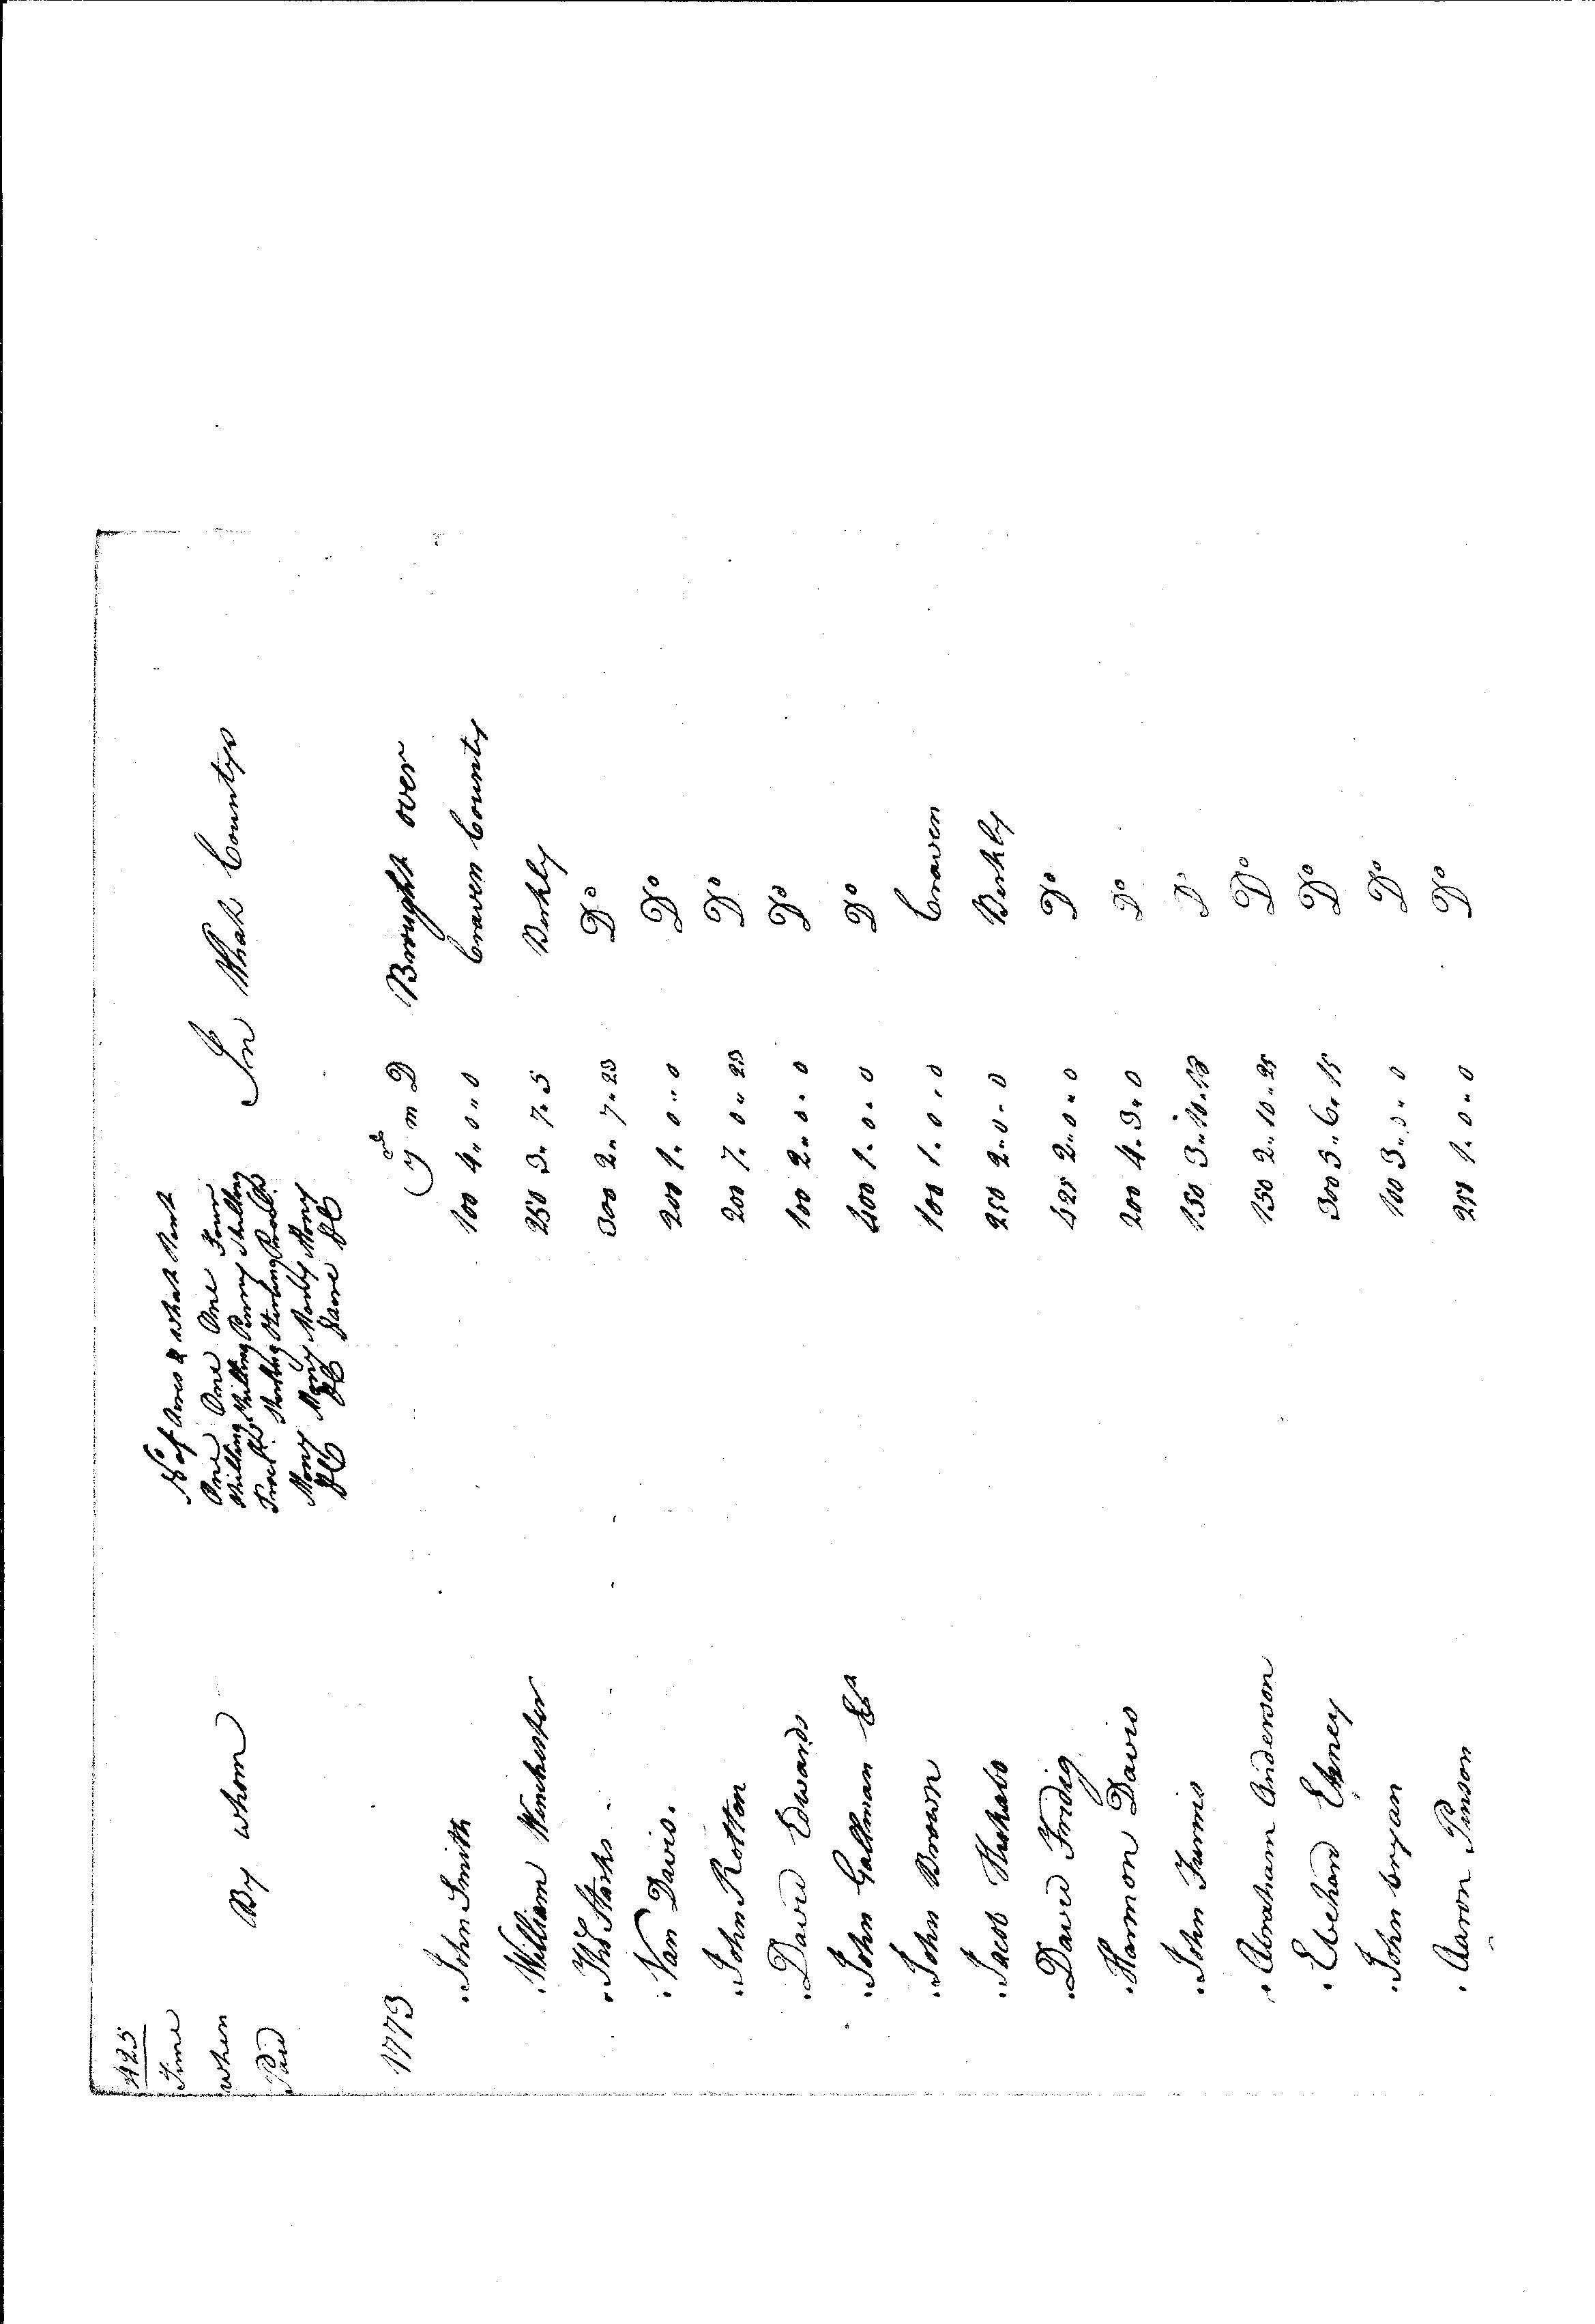 425
Time when Paid
By whom
No of Acres & what Rent
One One One One Four
Shilling Shilling Penny Shilling
Procl. Sterling Sterling Procl.
Mony Mony Mony Mony
In What Countys
1773
yrs m D Brought over
John Smith 100 4 " 0 " 0 Craven County
William Winchester 250 3 " 7 " 5 Berkly
Thos Starks 300 2 " 7 " 23 Do
Van Davis. 200 1 " 0 " 0 Do
John Rotton 200 7 " 0 " 23 Do
David Edwards 100 2 " 0 " 0 Do
John Gallman 400 1 " 0 " 0 Do
John Brown 100 1 " 0 " 0 Craven
Jacob 250 2 " 0 " 0 Berkly
David Fridig 425 2 " 0 " 0 Do
Harmon Davis 200 4 " 3 " 0 Do
John 150 3 " 10 " 18 Do
Abraham Anderson 150 2 " 10 " 25 Do
Ebehard Ehney 300 3 " 6 " 15 Do
John bryan 100 3 " 0 " 0 Do
Aaron Pinson 250 1 " 0 " 0 Do